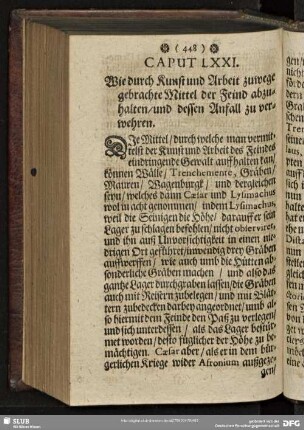 ( 448 )
CAPUT LXXI.
Wie durch Kunst und Arbeit zuwege
gebrachte Mittel der Feind abzu-
halten/und dessen Anfall zu ver-
wehren.
DJe Mittel/durch welche man vermit-
telst der Kunst und Arbeit des Feindes
eindringende Gewalt auffhalten kan/
können Wälle/Trenchemente, Gräben/
Mauren/Wagenburgk/ und dergleichen
seyn/welches dann Cæsar und Lysimachus
wol in acht genommen/ indem Lysimachus,
weil die Seinigen die Höhe/ darauff er sein
Lager zu schlagen befohlen/nicht observiret,
und ihn auß Unvorsichtigkeit in einen nie-
drigen Ort geführet/unwendig drey Gräben
auffwerffen/ wie auch umb die Hütten ab-
sonderliche Gräben machen/ und also das
gantze Lager durchgraben lassen/die Gräben
auch mit Reisern zubelegen/ und mit Blät-
tern zubedecken darbey angeordnet/ und al-
so hiermit dem Feinde den Paß zu verlegen/
und sich unterdessen/ als das Lager bestür-
met worden/ desto füglicher der Höhe zu be-
mächtigen. Cæsar aber/ als er in dem bür-
gerlichen Kriege wider Afronium außgezo-
gen/
SLUB
DFG